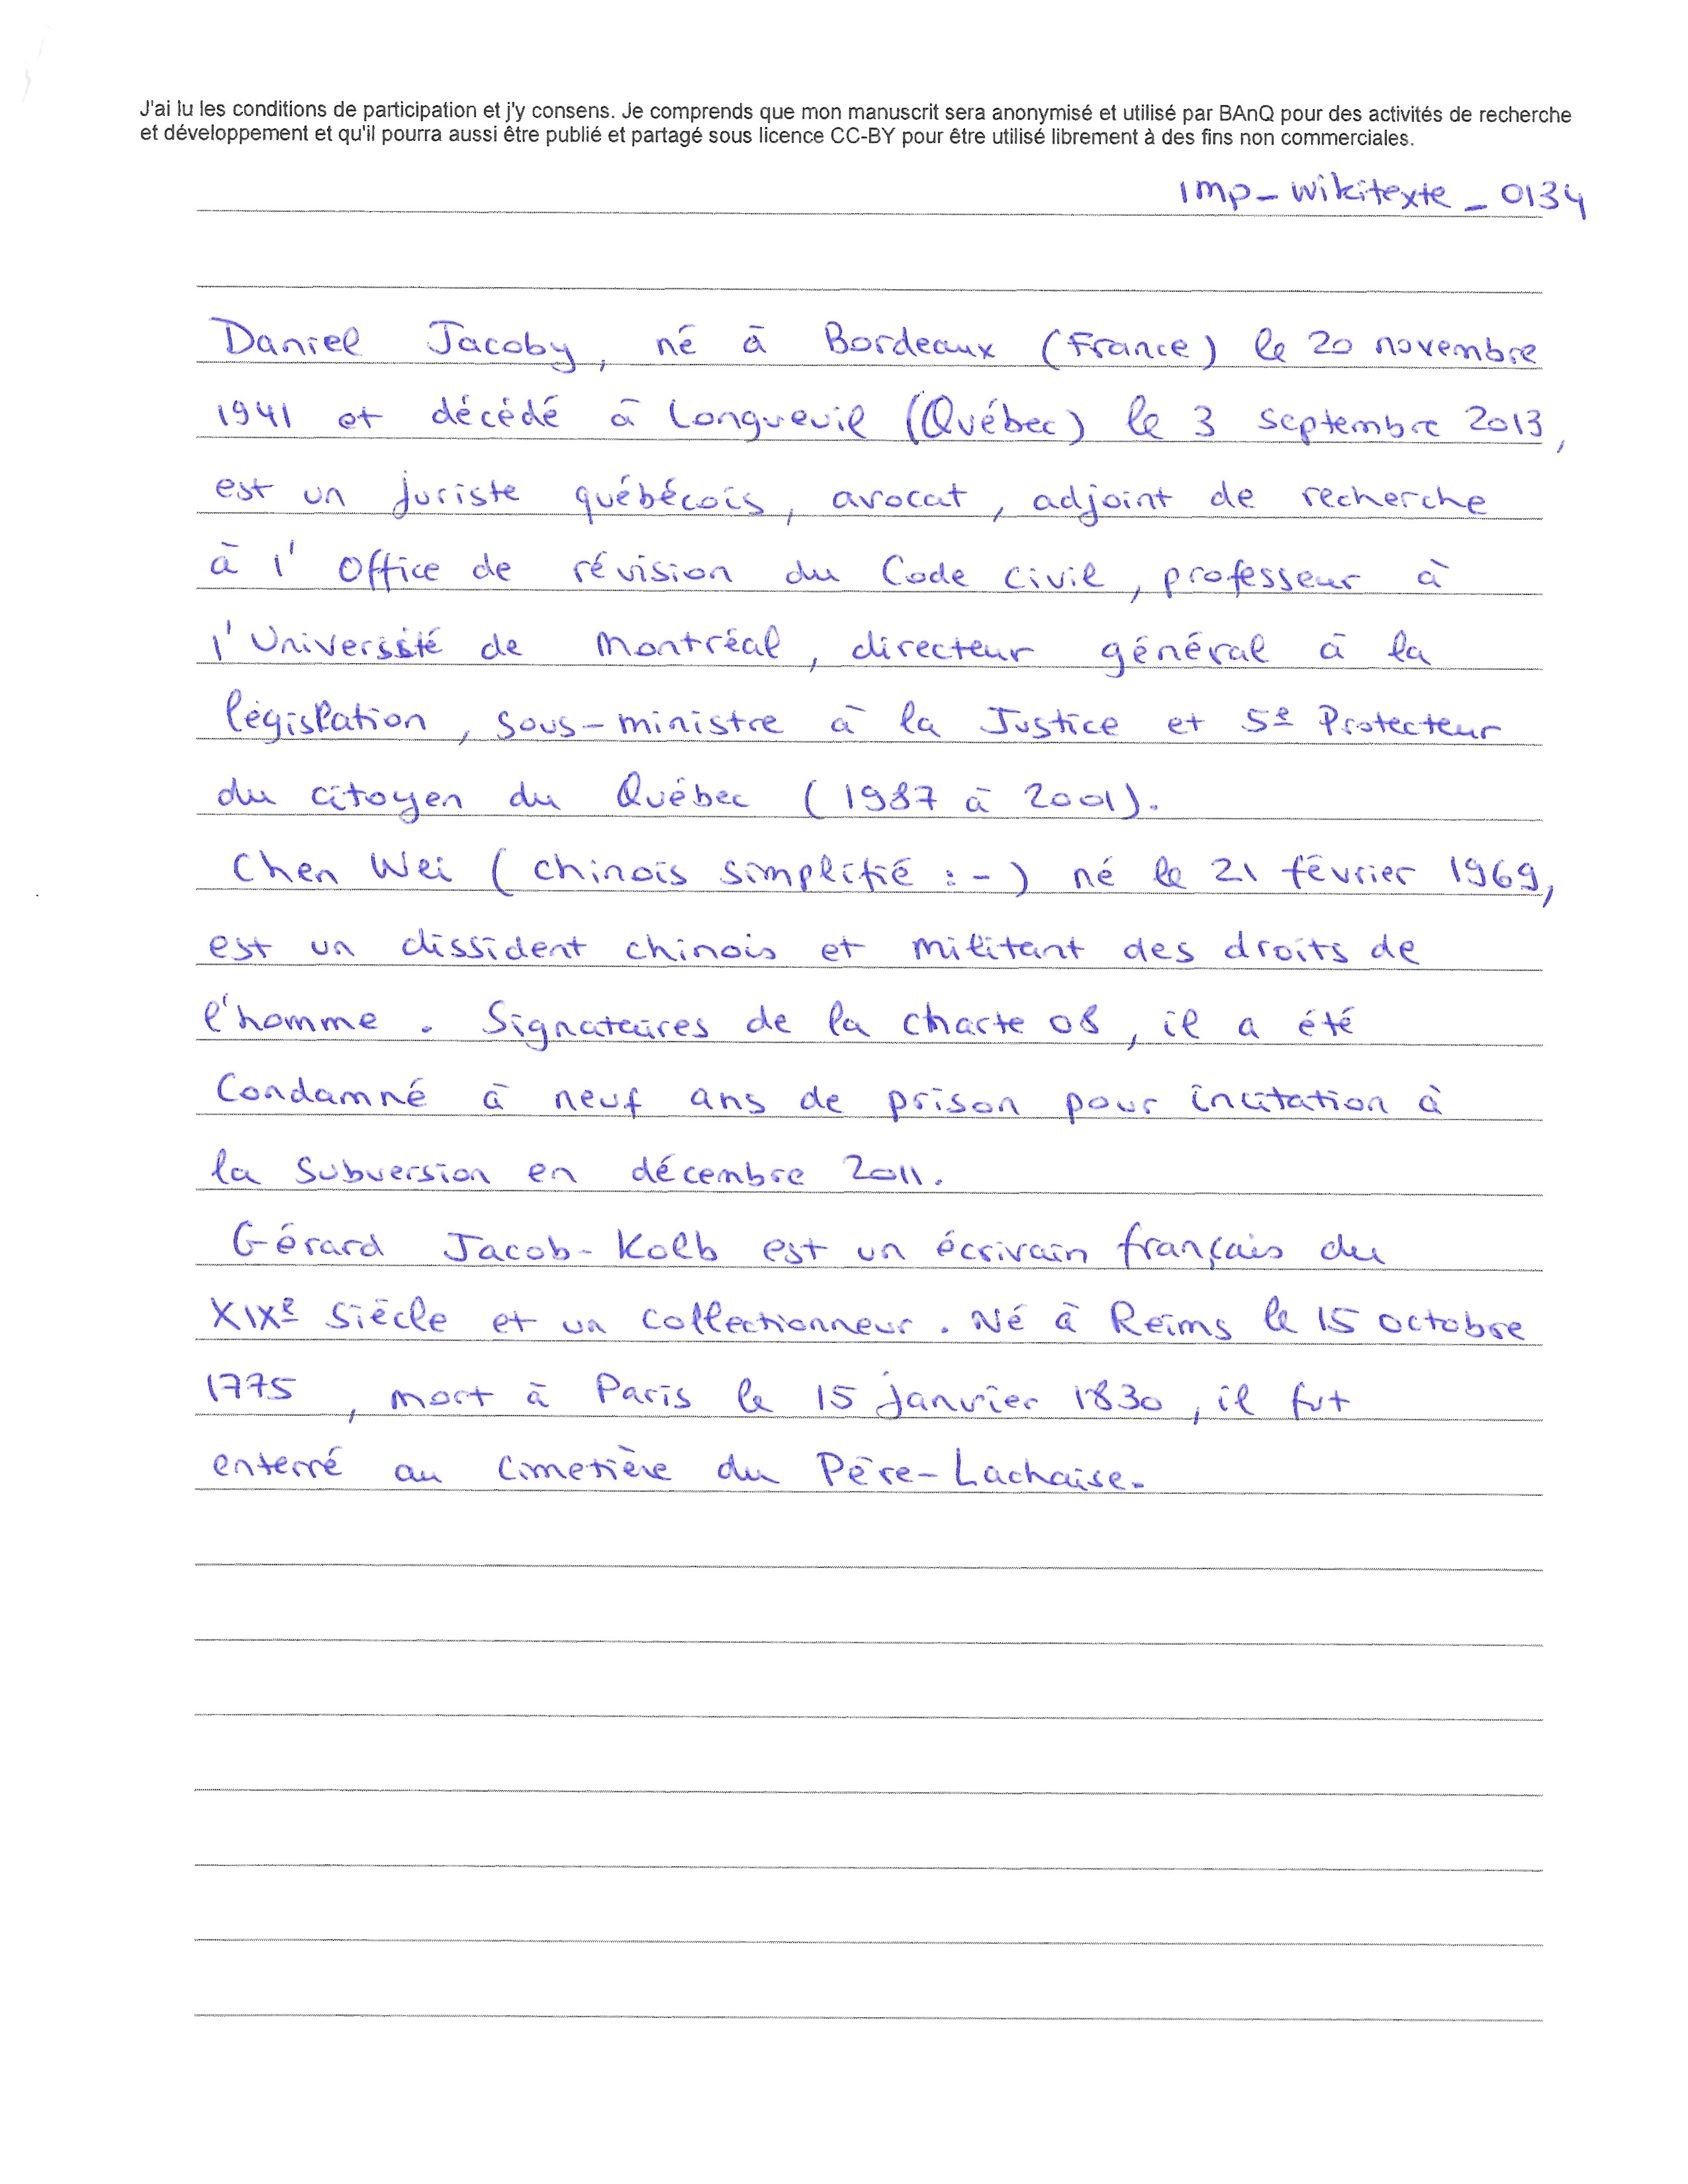 J'ai lu les conditions de participation et j'y consens. Je comprends que mon manuscrit sera anonymisé et utilisé par BAnQ pour des activités de recherche
et développement et qu'il pourra aussi être publié et partagé sous licence CC-BY pour être utilisé librement à des fins non commerciales.
imp_wikitexte_0134
Daniel Jacoby, né à Bordeaux (France) le 20 novembre
1941 et décédé à Longueuil (Québec) le 3 septembre 2013,
est un juriste québécois, avocat, adjoint de recherche
à l'Office de révision du Code civil, professeur à
l'Université de Montréal, directeur général à la
législation, sous-ministre à la Justice et 5e Protecteur
du citoyen du Québec (1987 à 2001).
Chen Wei (chinois simplifié : -) né le 21 février 1969,
est un dissident chinois et militant des droits de
l'homme. Signataires de la charte 08, il a été
Condamné à neuf ans de prison pour incitation à
la Subversion en décembre 2011.
Gérard Jacob-Kolb est un écrivain français du
XIXe Siècle et un collectionneur. Né à Reims le 15 octobre
1775, mort à Paris le 15 janvier 1830, il fut
enterré au Cimetière du Père-Lachaise.